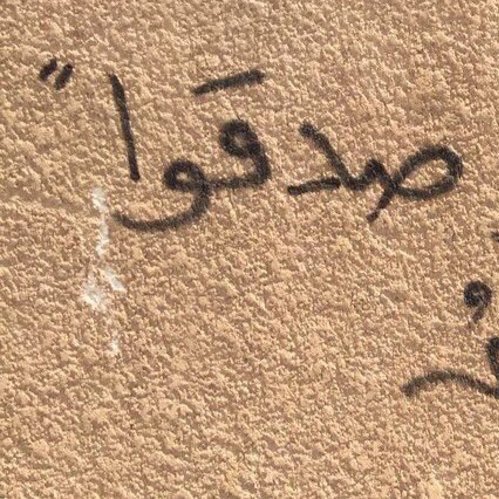 صدقوا"